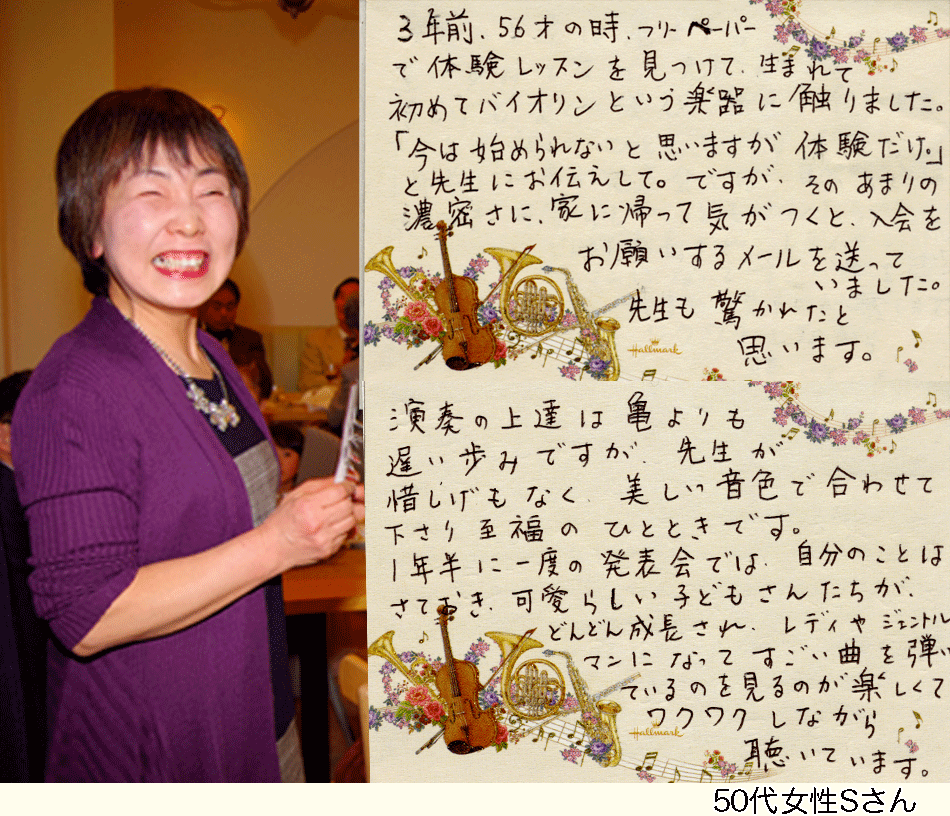 3年前、56才の時、フリーペーパー
で体験レッスンを見つけて、生まれて
初めてバイオリンという楽器に触りました。
「今は始められないと思いますが体験だけ。」
と先生にお伝えして。ですが、そのあまりの
濃密さに、家に帰って気がつくと、入会を
お願いするメールを送って
いました。
先生も驚かれたと
思います。
Hallmark
演奏の上達は亀よりも
遅い歩みですが、先生が
惜しげもなく、美しい音色で合わせて
下さり至福のひとときです。
1年半に一度の発表会では、自分のことは
さておき、可愛らしい子どもさんたちが、
どんどん成長され、レディやジェントル
マンになってすごい曲を弾い
ているのを見るのが楽しくて
ワクワクしながら
聴いています。
Hallmark
50代女性Sさん